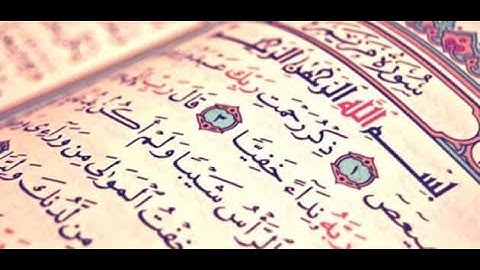 سُورَةُ مَرْيَمَ
بِسْمِ اللَّهِ الرَّحْمَٰنِ الرَّحِيمِ
يعص ١ ذِكْرُ رَحْمَتِ رَبِّكَ
رَبَّهُ نِدَآءً خَفِيًّا ٣ قَالَ رَبِّ
الرَّأْسُ شَيْبًا وَلَمْ أَكُنْ
خِفْتُ الْمَوَٰلِيَ مِن وَرَآءِى
مِن لَّدُنكَ وَلِيًّا